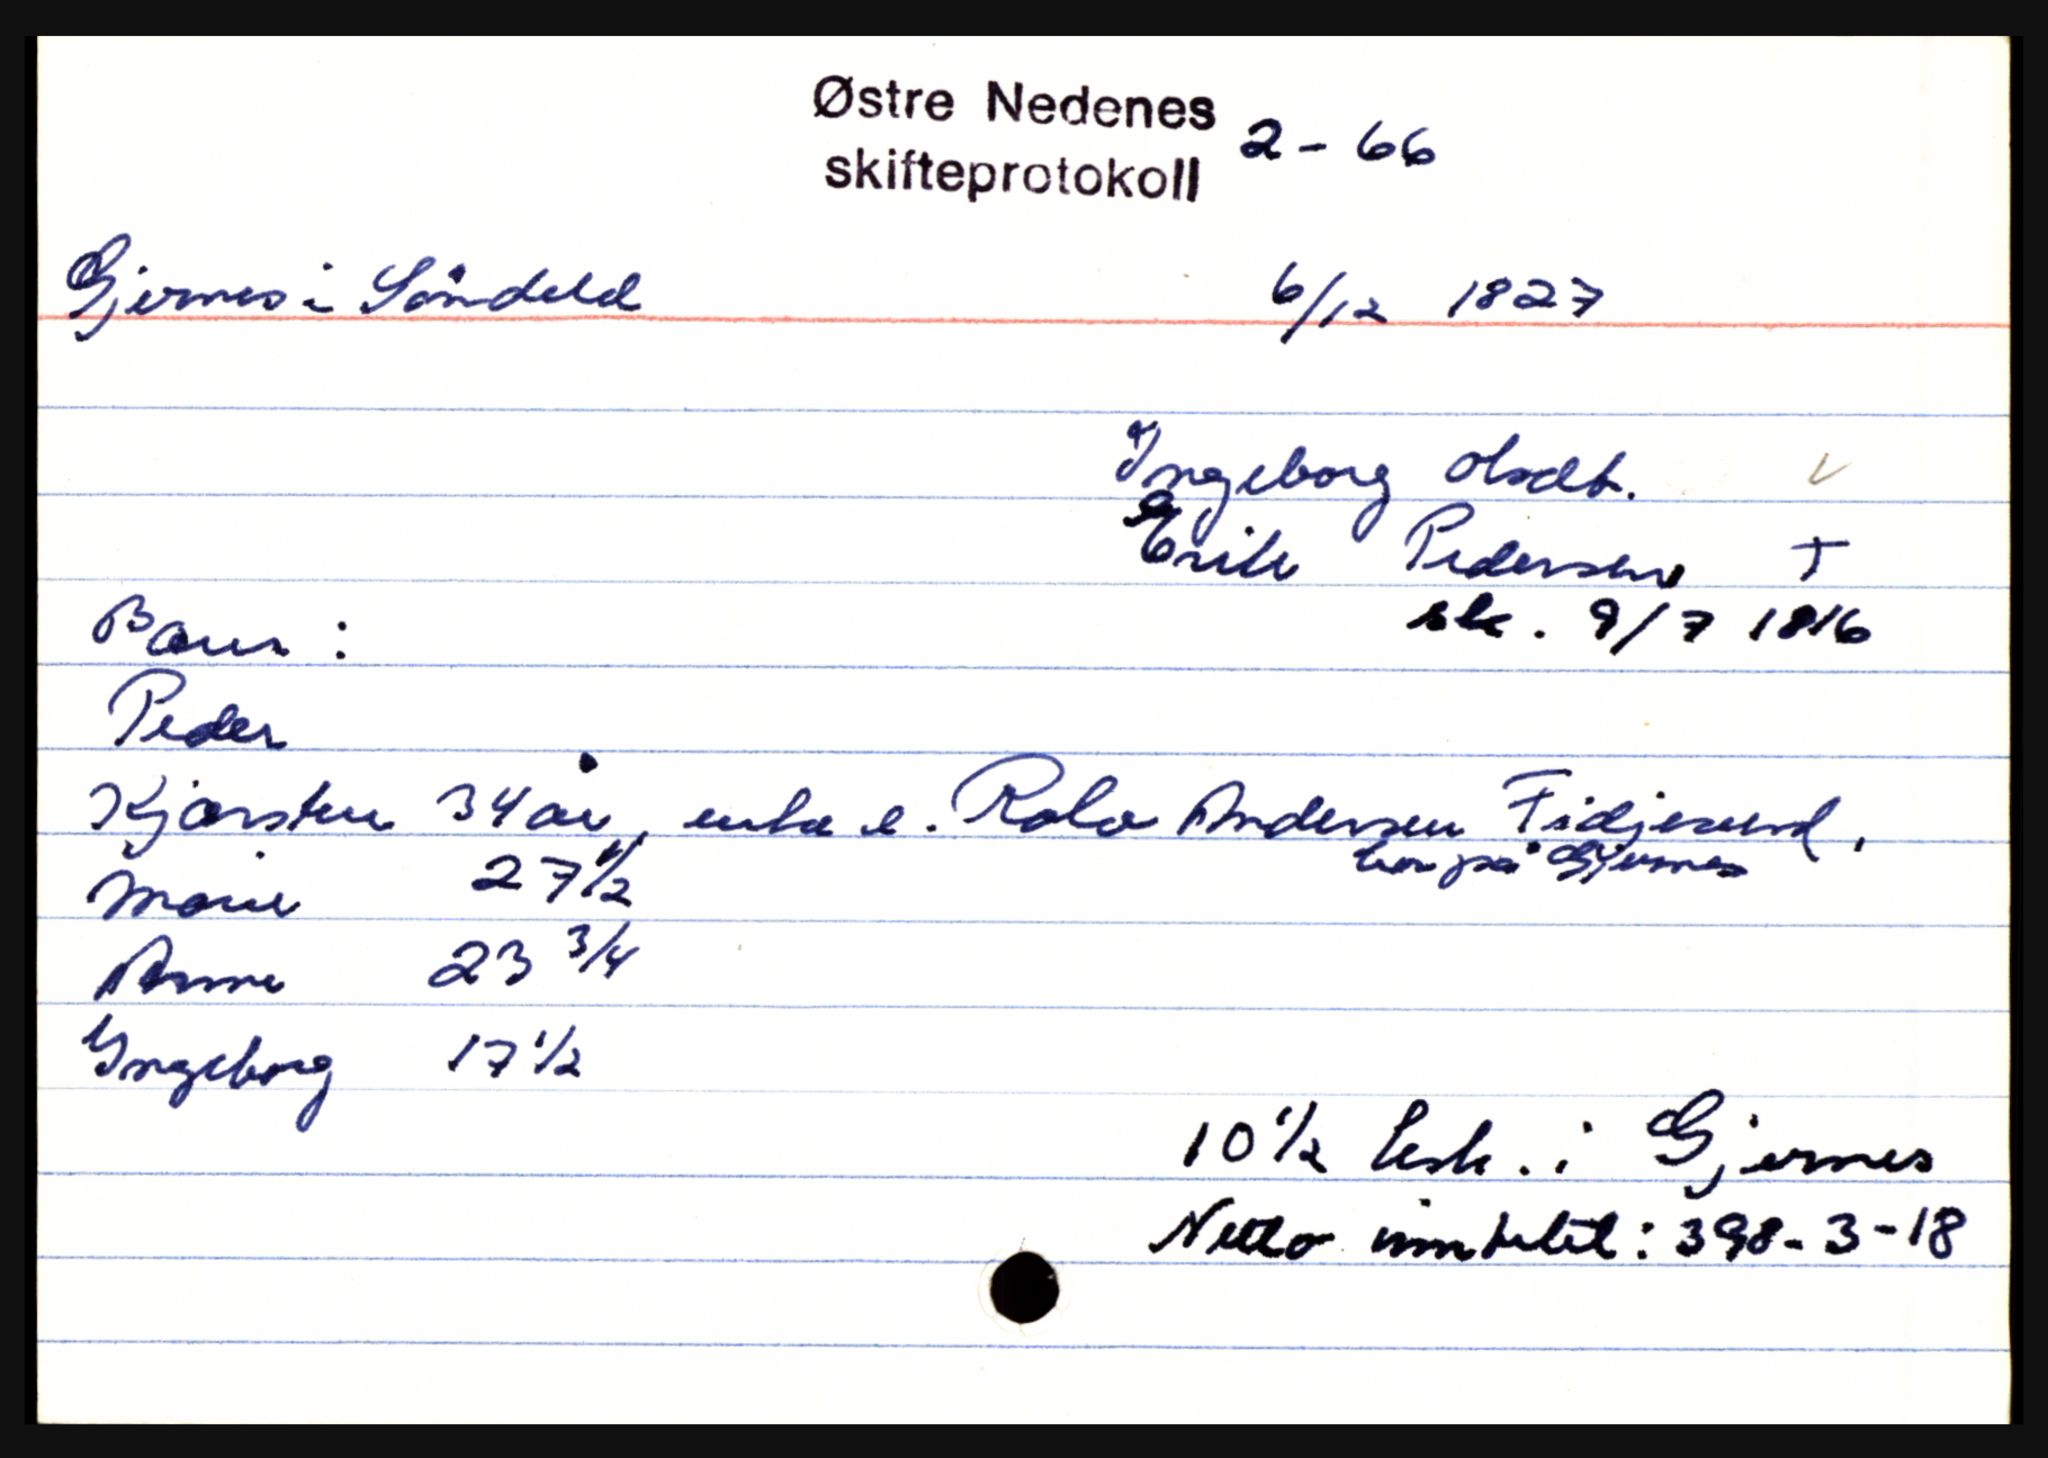 Østre Nedenes
skifteprotokoll 2-66
Gjernes i Søndeled 6/12 1827
Ingeborg Olsdt. v
Erik Pedersen †
sk. 9/7 1816
Barn:
Peder
Kjørsten 34 år, enke e. Andersen Fidjesund,
bor på Gjernes
Marie 27 1/2
Anne 23 3/4
Ingeborg 17 1/2
10 1/2 i Gjernes
Netto inntekt: 398-3-18